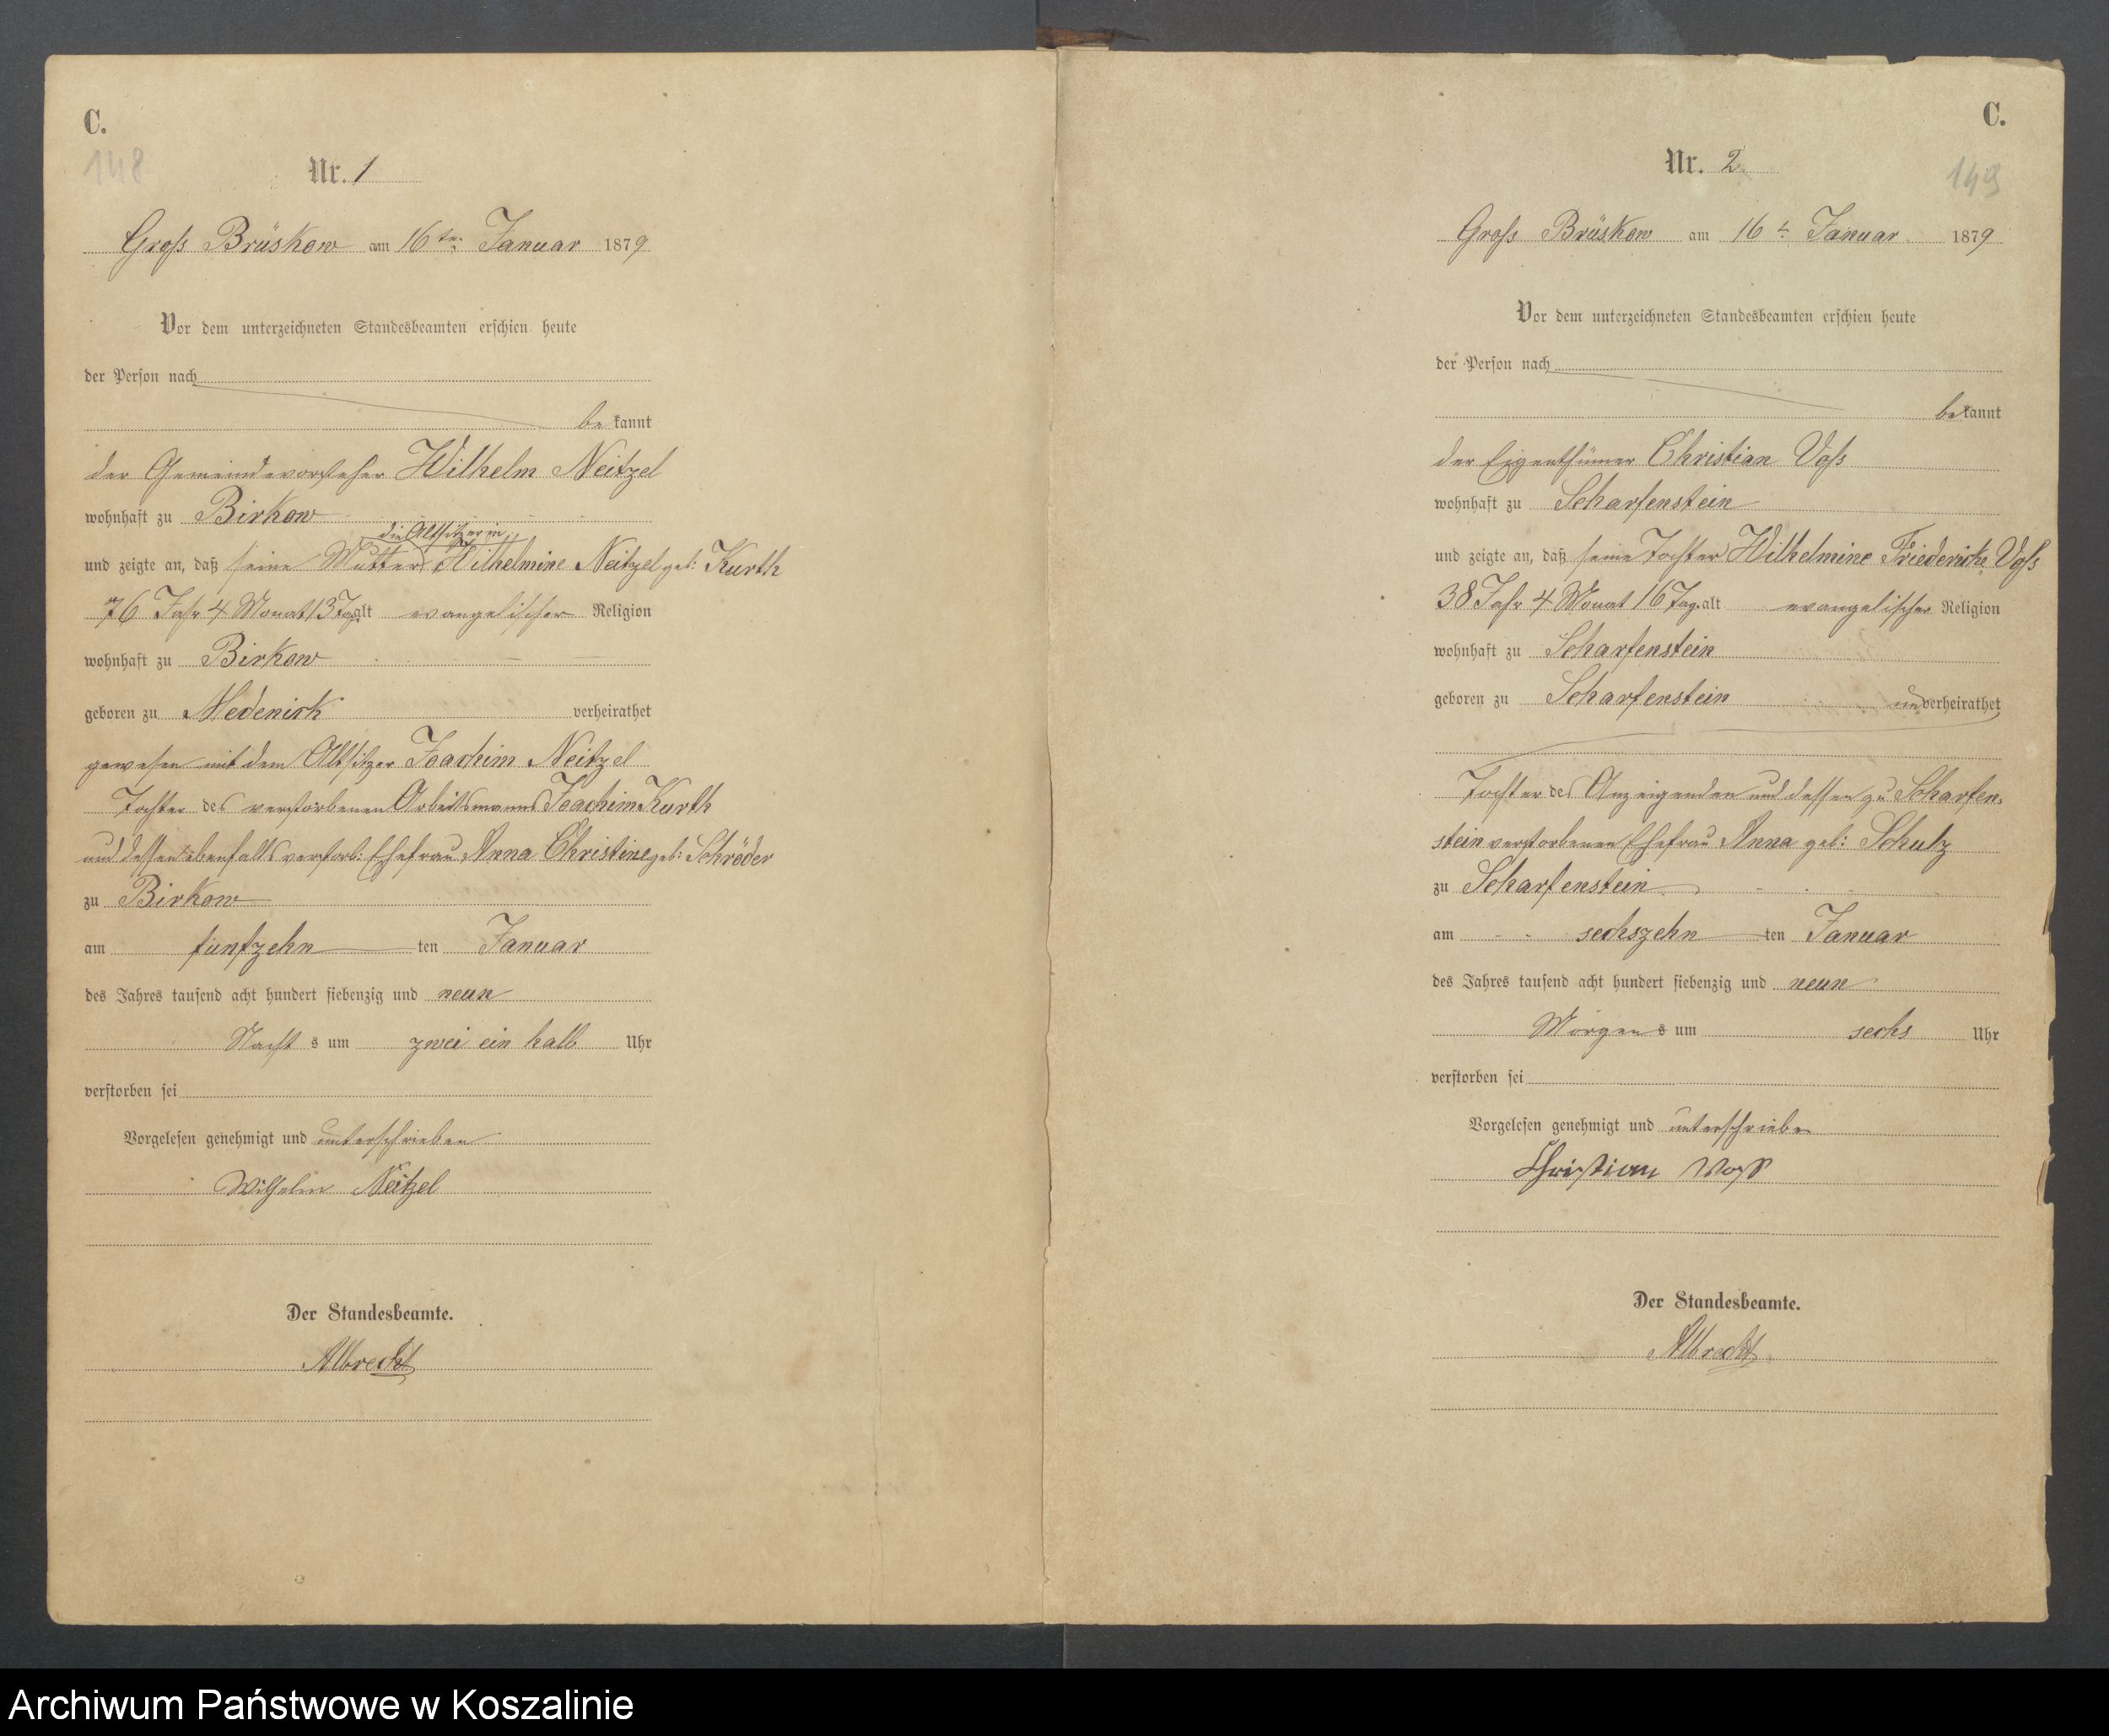 C.
148
Nr. 1
Groß Brüskow am 16ten Januar 1879
Vor dem unterzeichneten Standesbeamten erschien heute
der Person nach
bekannt
der Gemeindevorsteher Wilhelm Neitzel
wohnhaft zu Birkow
die Altsitzerin
und zeigte an, daß seine Mutter Wilhelmine Neitzel geb: Kurth
76 Jahr 4 Monat 13 Tag alt evangelischer Religion
wohnhaft zu Birkow
geboren zu verheirathet
gewesen mit dem Altsitzer Joachim Neitzel
Tochter des verstorbenen Arbeitsmanns Joachim Kurth
und dessen ebenfalls verstorb: Ehefrau Anna Christine geb: Schröder
zu Birkow
am fünfzehn ten Januar
des Jahres tausend acht hundert siebenzig und neun
Nacht s um zwei ein halb Uhr
verstorben sei
Vorgelesen genehmigt und unterschrieben
Wilhelm Neitzel
Der Standesbeamte.
Albrecht
C.
149
Nr. 2
Groß Brüskow am 16t Januar 1879
Vor dem unterzeichneten Standesbeamten erschien heute
der Person nach
bekannt
der Eigenthümer Christian Voß
wohnhaft zu Scharfenstein
und zeigte an, daß seine Tochter Wilhelmine Friedericke Voß
38 Jahr 4 Monat 16 Tag alt evangelischer Religion
wohnhaft zu Scharfenstein
geboren zu Scharfenstein unverheirathet
Tochter des Anzeigenden und dessen zu Scharfen-
stein verstorbenen Ehefrau Anna geb: Schulz
zu Scharfenstein
am sechszehn ten Januar
des Jahres tausend acht hundert siebenzig und neun
Morgen s um sechs Uhr
verstorben sei
Vorgelesen genehmigt und unterschrieben
Christian Voß
Der Standesbeamte.
Albrecht
Archiwum Państwowe w Koszalinie